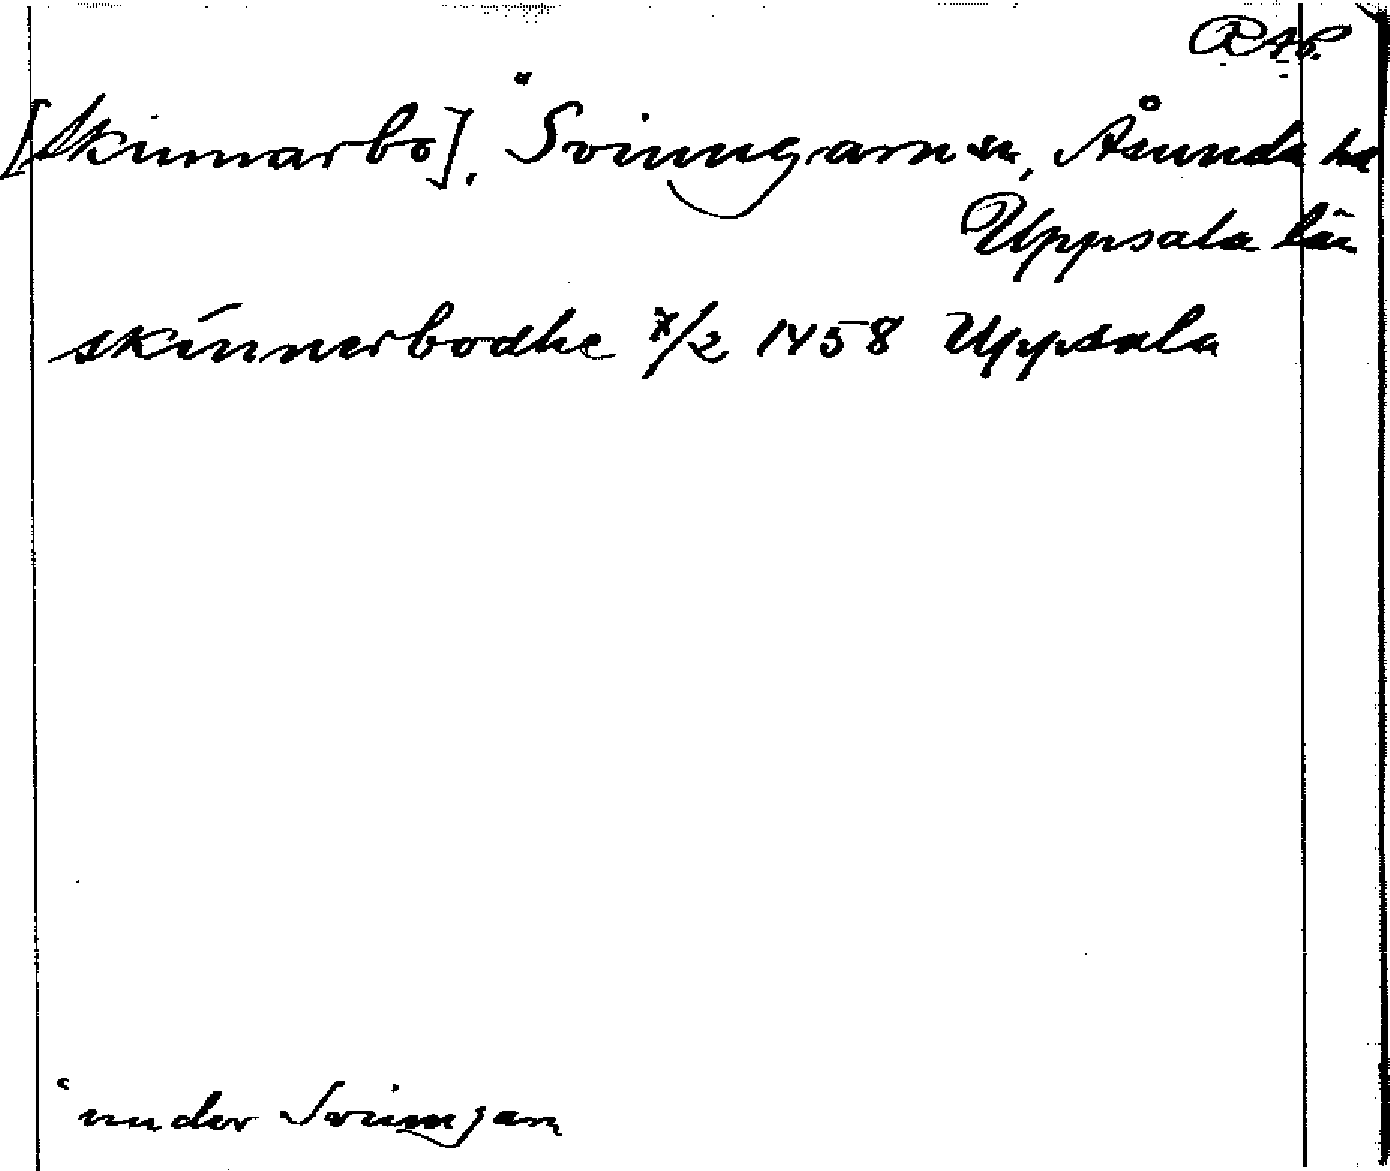 RAp.
[Skinnarbo], " Svinngarn sn, Åsunda hd
Uppsala län
skinnerbodhe 7/2 1458 Uppsala
" under Svinngarn